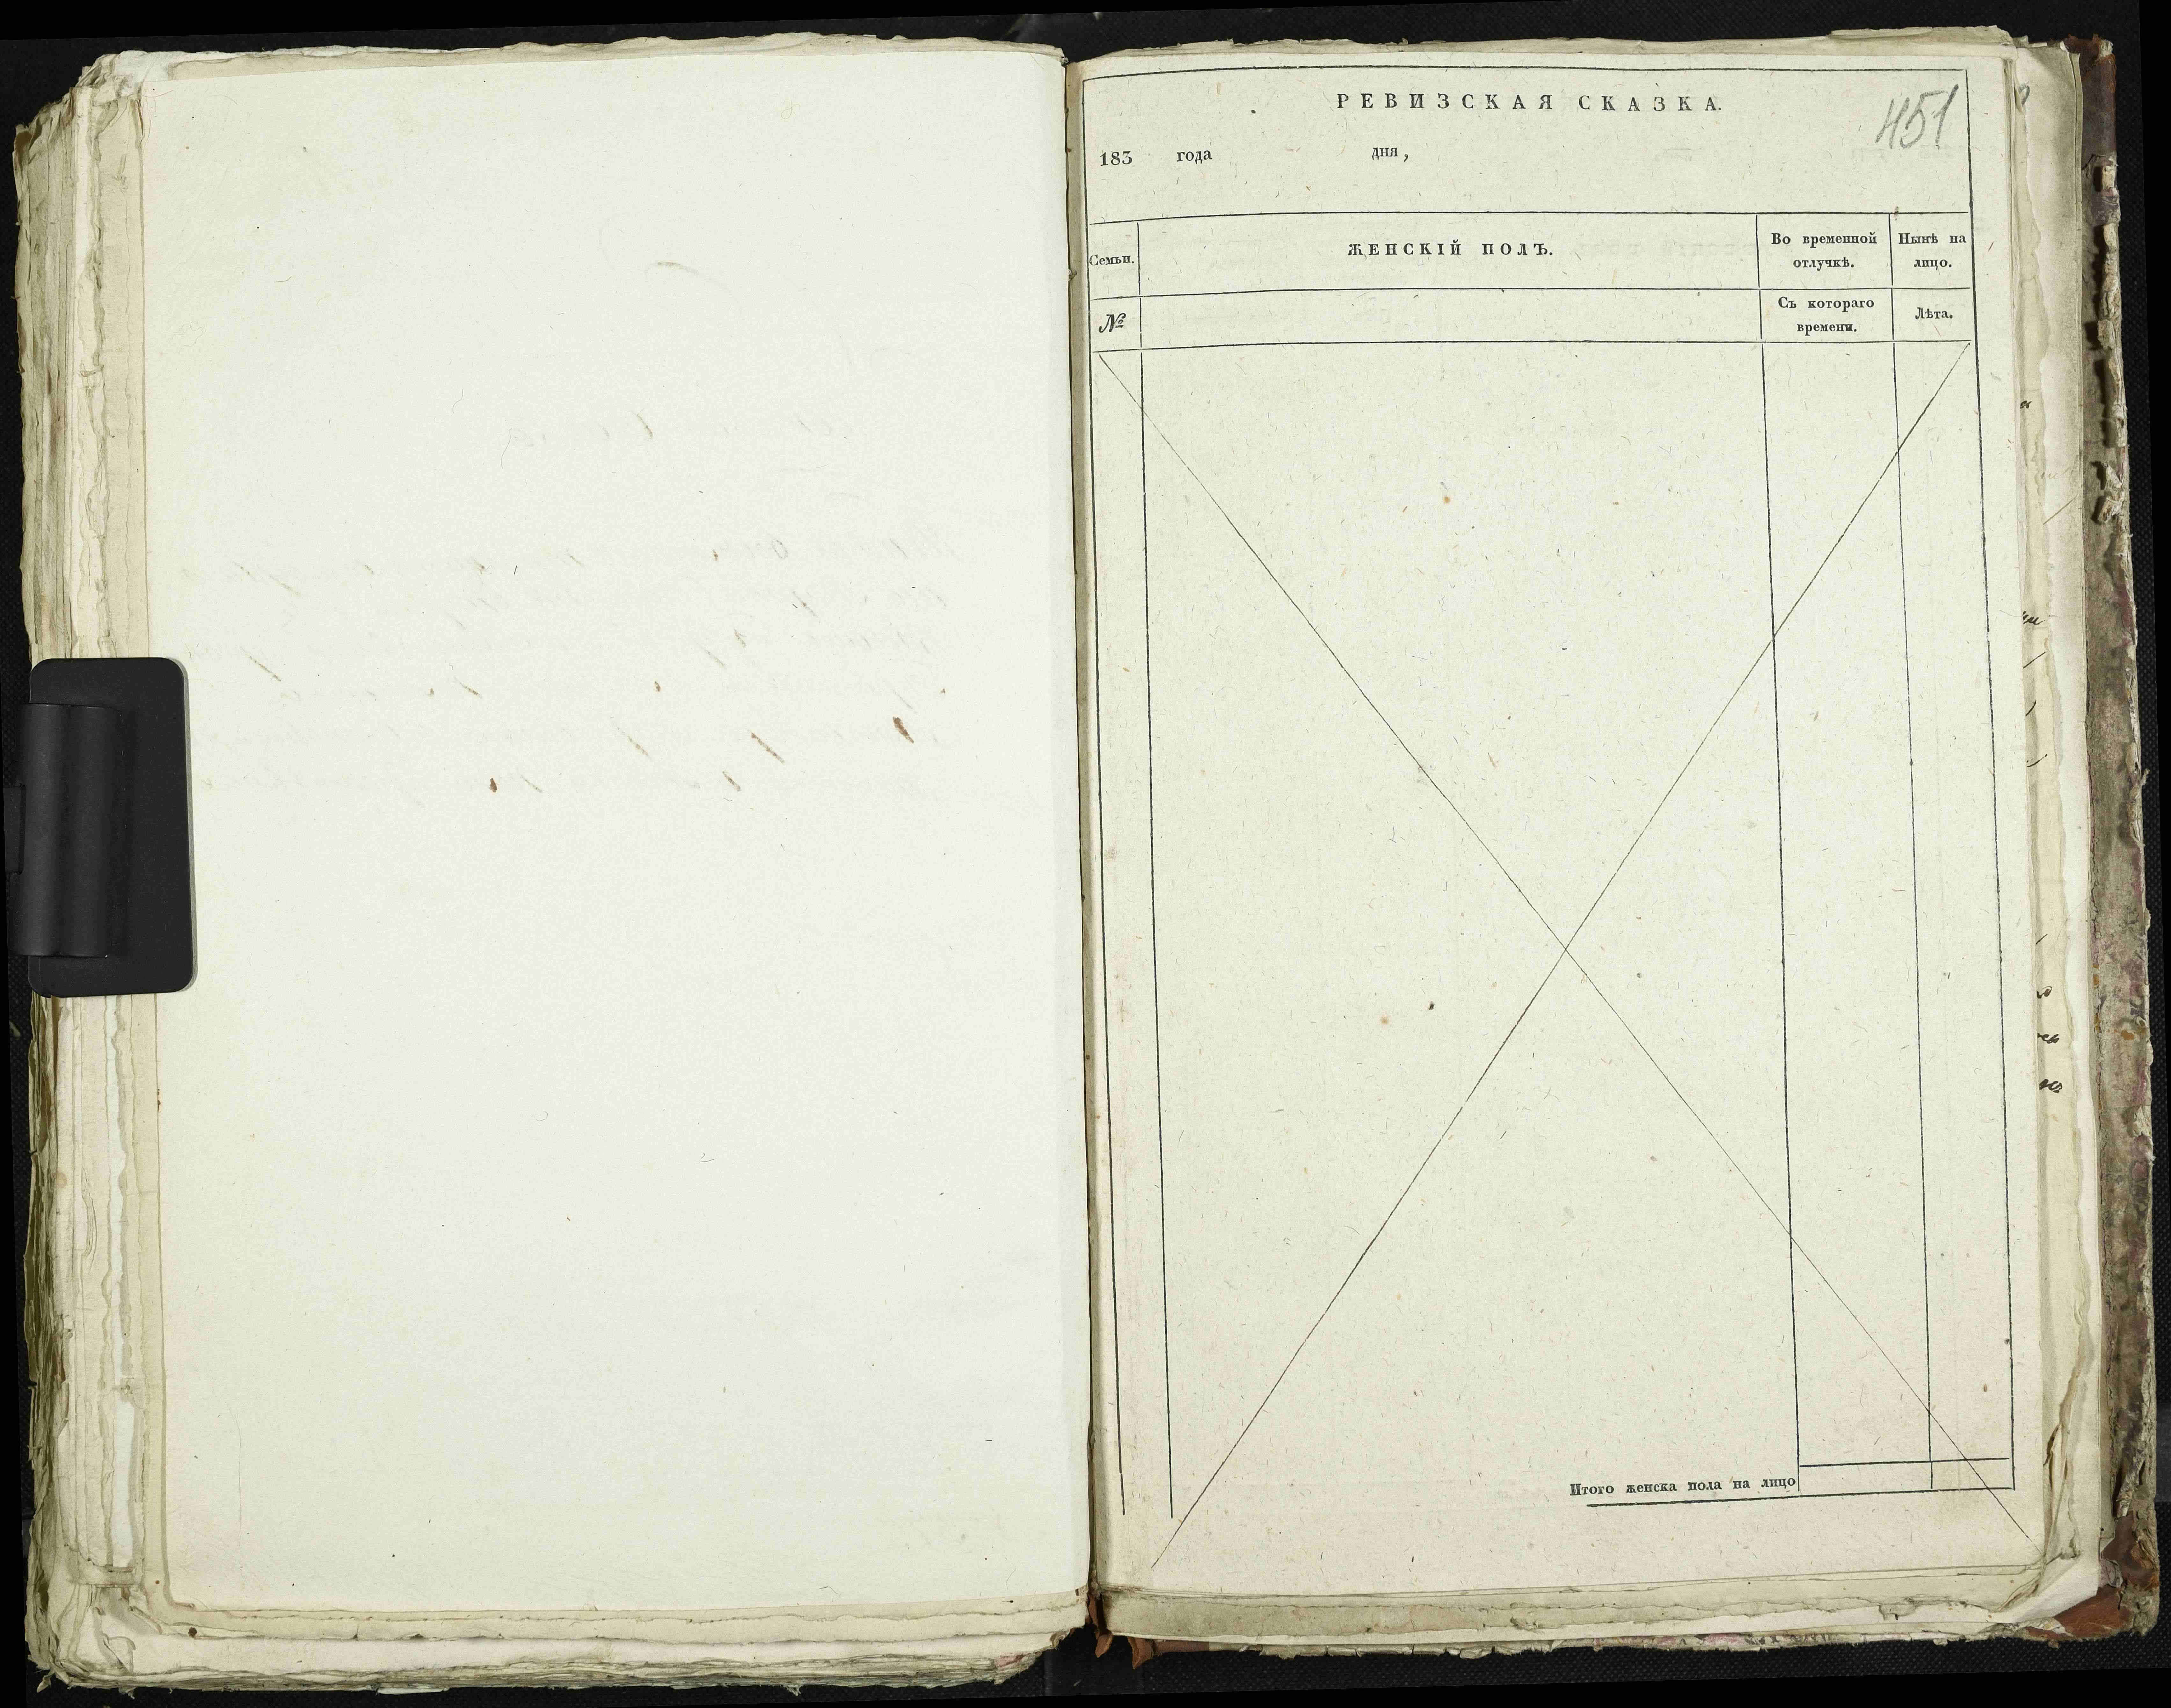 РЕВИЗСКАЯ СКАЗКА.
451
183 года дня,
Семьи.
ЖЕНСКІЙ ПОЛЪ.
Во временной отлучкѣ.
Нынѣ на лицо.
№
Съ котораго времени.
Лѣта.
Итого женска пола на лицо